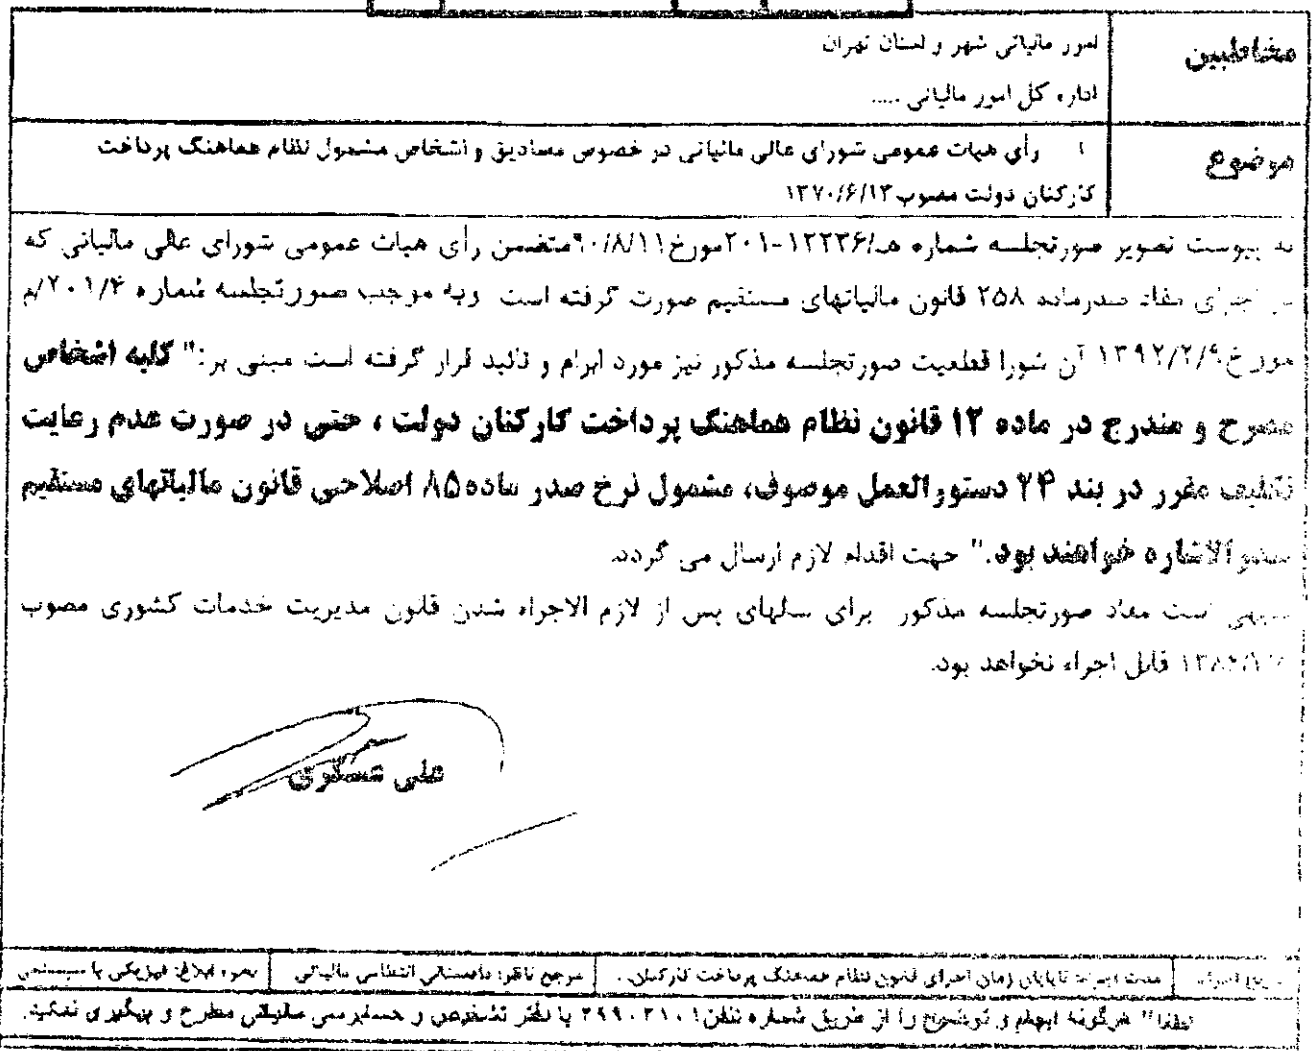 مخاطبین
امور مالیاتی شهر و استان تهران
اداره کل امور مالیاتی .....
موضوع
رأی هیات عمومی شورای عالی مالیاتی در خصوص مصادیق و اشخاص مشمول نظام هماهنگ پرداخت
کارکنان دولت مصوب ۱۳۷۰/۶/۱۳
به پیوست تصویر صورتجلسه شماره هـ/۱۲۲۳۶-۲۰۱ مورخ ۹۰/۸/۱۱ متضمن رأی هیات عمومی شورای عالی مالیاتی که
اجرای مفاد صدرماده ۲۵۸ قانون مالیاتهای مستقیم صورت گرفته است وبه موجب صورتجلسه شماره ۲۰۱/۴/م
مورخ ۱۳۹۲/۲/۹ آن شورا قطعیت صورتجلسه مذکور نیز مورد ابرام و تائید قرار گرفته است مبنی بر:" کلیه اشخاص
مصرح و مندرج در ماده ۱۲ قانون نظام هماهنگ پرداخت کارکنان دولت ، حتی در صورت عدم رعایت
تکلیف مقرر در بند ۲۴ دستورالعمل موصوف، مشمول نرخ صدر ماده ۸۵ اصلاحی قانون مالیاتهای مستقیم
صدرالاشاره خواهند بود." جهت اقدام لازم ارسال می گردد.
بدیهی است مفاد صورتجلسه مذکور برای سالهای پس از لازم الاجراء شدن قانون مدیریت خدمات کشوری مصوب
قابل اجراء نخواهد بود.
علی عسگری
مدت اجرا: تاپایان زمان اجرای قانون نظام هماهنگ پرداخت کارکنان. مرجع ناظر: دادستانی انتظامی مالیاتی نحوه ابلاغ: فیزیکی یا سیستمی
لطفا" هرگونه ابهام و توضیح را از طریق شماره تلفن ۲۹۹۰۳۱۰۱ با دفتر تشخیص و حسابرسی مالیاتی مطرح و پیگیری نمائید.